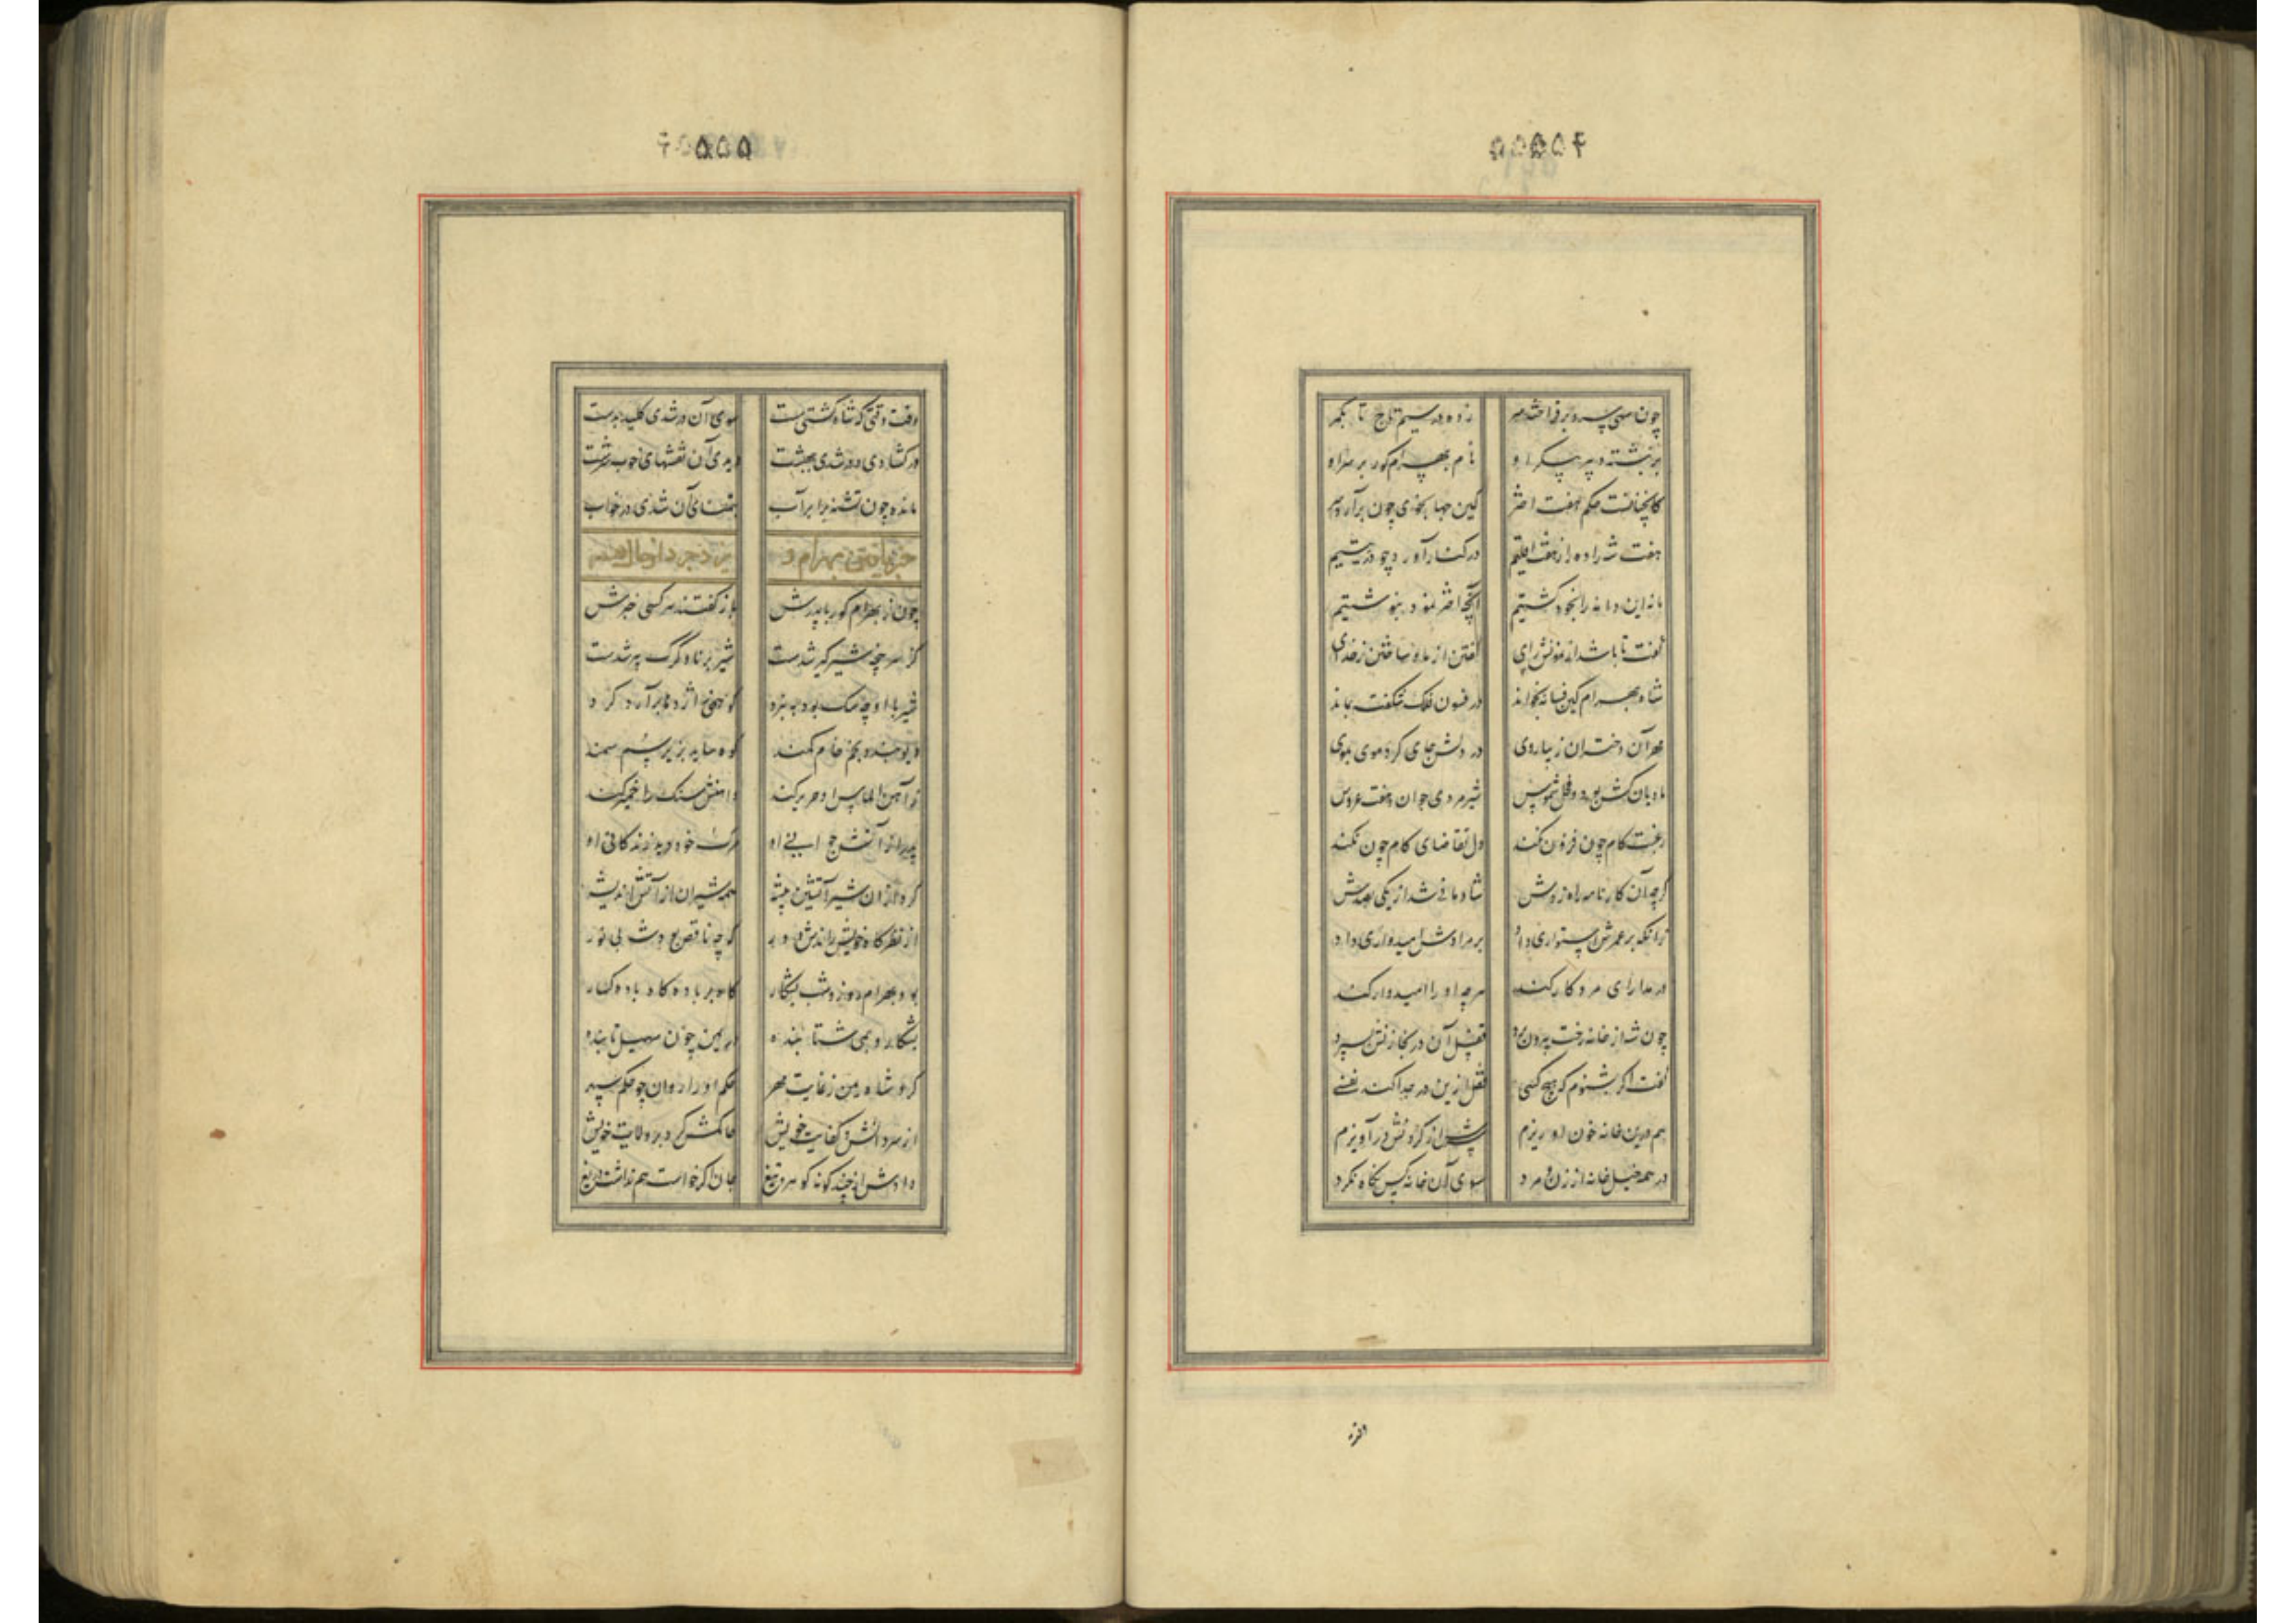 چون سهی سرو برفراخته سر زده در سیم تاج تا بکمر
برنبشته دبیر پیکر او نام بهرام گور بر سر او
کانچنانست حکم هفت اختر کین جهانجوی چون برآرد سر
هفت شهزاده از هفت اقلیم در کنار آورد چو در یتیم
ما نه این دانه را بخود کشتیم آنچه اختر نمود بنوشتیم
گفت تا باشد از نمونش رای گفتن از ما و ساختن ز خدای
شاه بهرام کین فسانه بخواند در فسون فلک شگفت بماند
مهر آن دختران زیباروی در دلش جای کرد موی بموی
مادیان گشن بود و فحل شموس شیرمردی جوان و هفت عروس
رغبت کام چون فزون نکند دل تقاضای کام چون نکند
گرچه آن کارنامه راه زدش شادمانی شد از یکی بصدش
زانکه بر عمرش استواری داد بر مرادش امیدواری داد
در مدارای مرد کار کند هر چه او را امیدوار کند
چون شه از خانه رخت بیرون برد قفل آن در بخازنش سپرد
گفت اگر بشنوم که هیچ کسی قفل ازین در جدا کند نفسی
هم درین خانه خون او ریزم سرش از گردنش درآویزم
در همه خیل خانه از زن و مرد سوی آن خانه کس نگاه نکرد
وقت وقتی که شاه گشتی مست سوی آن در شدی کلید بدست
در گشادی و در شدی ببهشت دیدی آن نقشهای خوب سرشت
مانده چون تشنه برابر آب بتمنای آن شدی در خواب
خبر یافتن بهرام و یزدجرد از حال
چون ز بهرام گور با پدرش بازگفتند هر کسی خبرش
کز سر چنگ شیرگیر شدست شیر برنا و گرگ پیر شدست
شیر با او چو سگ بود به نبرد کو همی اژدها برآرد گرد
دیو بندد بخم خام کمند کوه ساید بزیر سم سمند
ز آهن الماس او حریر کند و آهنش سنگ را خمیر کند
پدر از آتش جوانی او مرگ خود دید زندگانی او
کرد از آن شیر آتشین بیشه همه شیران از آتش اندیشه
از نظرگاه خویش راندش دور گرچه ناقص بود شب بی نور
بود بهرام روز و شب بشکار گاه بر باد و گاه باده گسار
بشکار و بمی شتابنده در یمن چون سهیل تابنده
کرد شاه یمن ز غایت مهر حکم او را روان چو حکم سپهر
از سر دانش و کفایت خویش حاکمش کرد بر ولایت خویش
دادش از چند گونه گوهر و تیغ جان اگر خواست هم نداشت دریغ